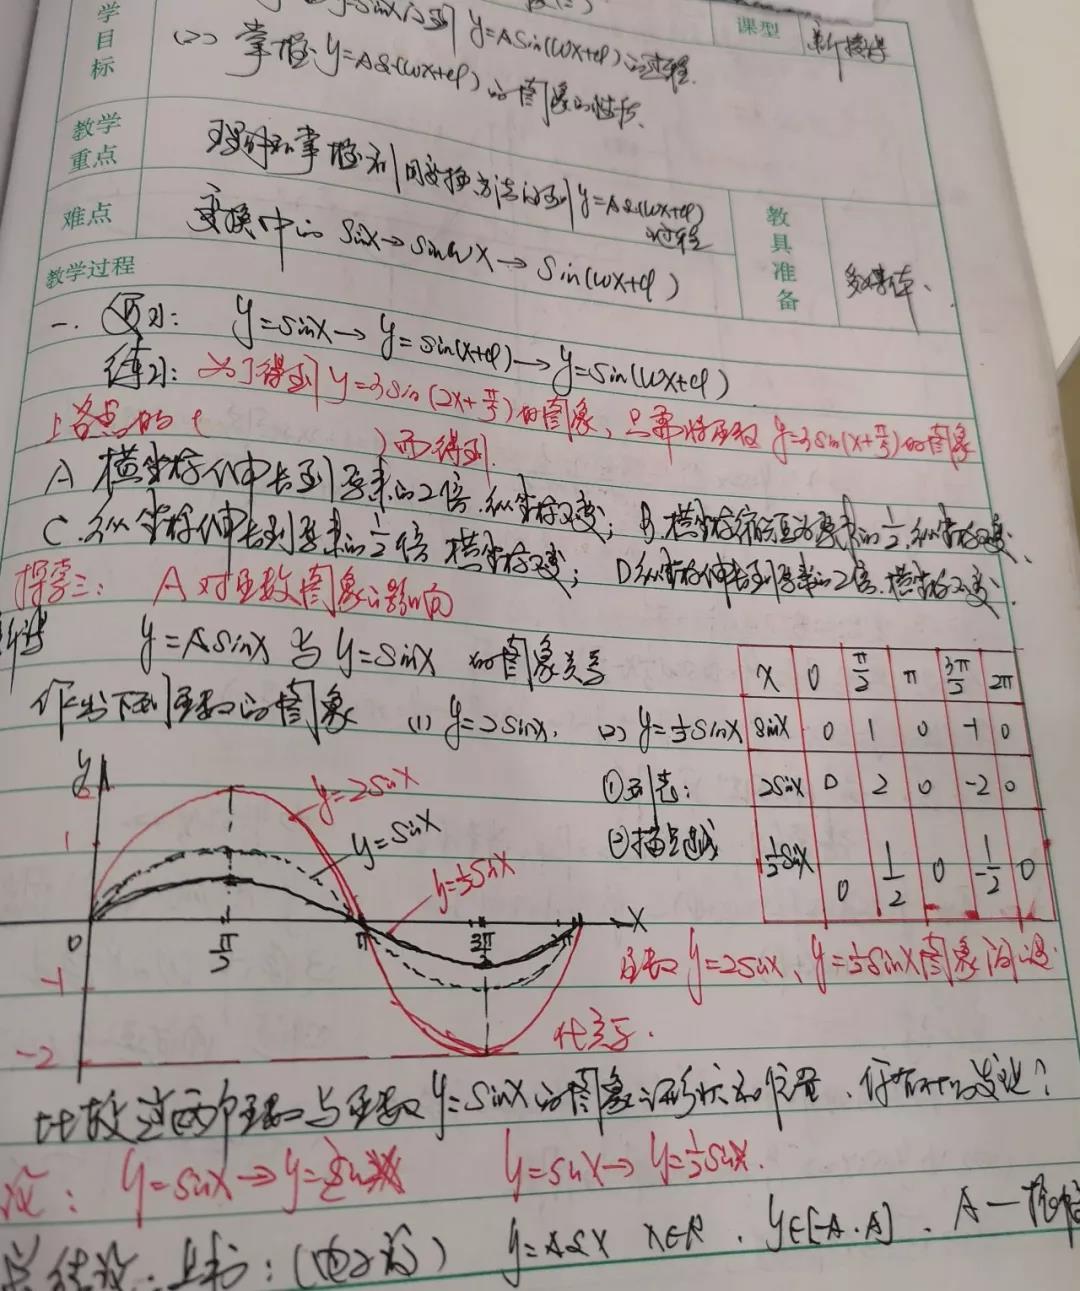 学目标
y=sinx得到y=Asin(ωx+φ)的过程.
课型 新授课
(2) 掌握y=Asin(ωx+φ)的图象的性质.
教学重点
理解和掌握利用变换方法得到y=Asin(ωx+φ)
过程
难点
变换中的 sinx→sinωx→sin(ωx+φ)
教具准备
多媒体.
教学过程
一. 复习: y=sinx→y=sin(x+φ)→y=sin(ωx+φ)
练习: 为了得到y=3sin(2x+π/5)的图象, 只需将函数y=3sin(x+π/5)的图象
上各点的( )而得到.
A 横坐标伸长到原来的2倍.纵坐标不变; B.横坐标缩短为原来的1/2.纵坐标不变.
C.纵坐标伸长到原来的1/2倍 横坐标不变; D纵坐标伸长到原来的2倍.横坐标不变.
探究三: A对函数图象的影响
y=Asinx与y=sinx的图象关系
作出下列函数的图象 (1) y=2sinx, (2) y=1/2sinx
x 0 π/2 π 3π/2 2π
sinx 0 1 0 -1 0
①列表: 2sinx 0 2 0 -2 0
②描点连线 1/2sinx 0 1/2 0 -1/2 0
y
y=2sinx
1
y=sinx
y=1/2sinx
0 π/2 π 3π/2 2π x
-1
-2
函数y=2sinx、y=1/2sinx图象间的
关系.
比较这两个函数与函数y=sinx的图象的形状和位置,你有什么发现?
y=sinx→y=2sinx y=sinx→y=1/2sinx.
y=Asinx x∈R. y∈[-A.A]. A—振幅